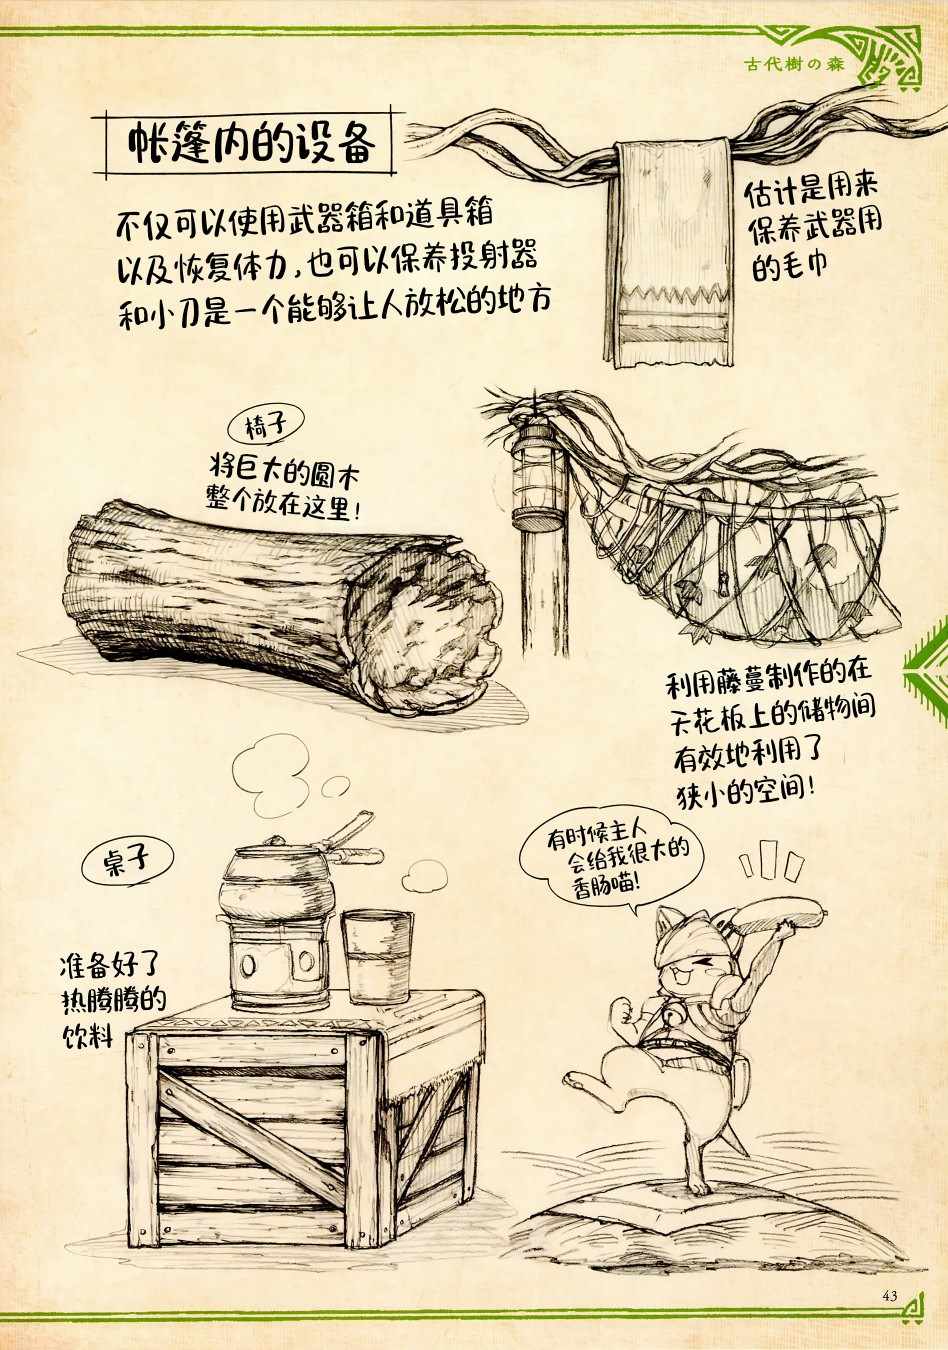 古代樹の森
帐篷内的设备
不仅可以使用武器箱和道具箱
以及恢复体力,也可以保养投射器
和小刀是一个能够让人放松的地方
估计是用来
保养武器用
的毛巾
椅子
将巨大的圆木
整个放在这里!
利用藤蔓制作的在
天花板上的储物间
有效地利用了
狭小的空间!
桌子
准备好了
热腾腾的
饮料
有时候主人
会给我很大的
香肠喵!
43